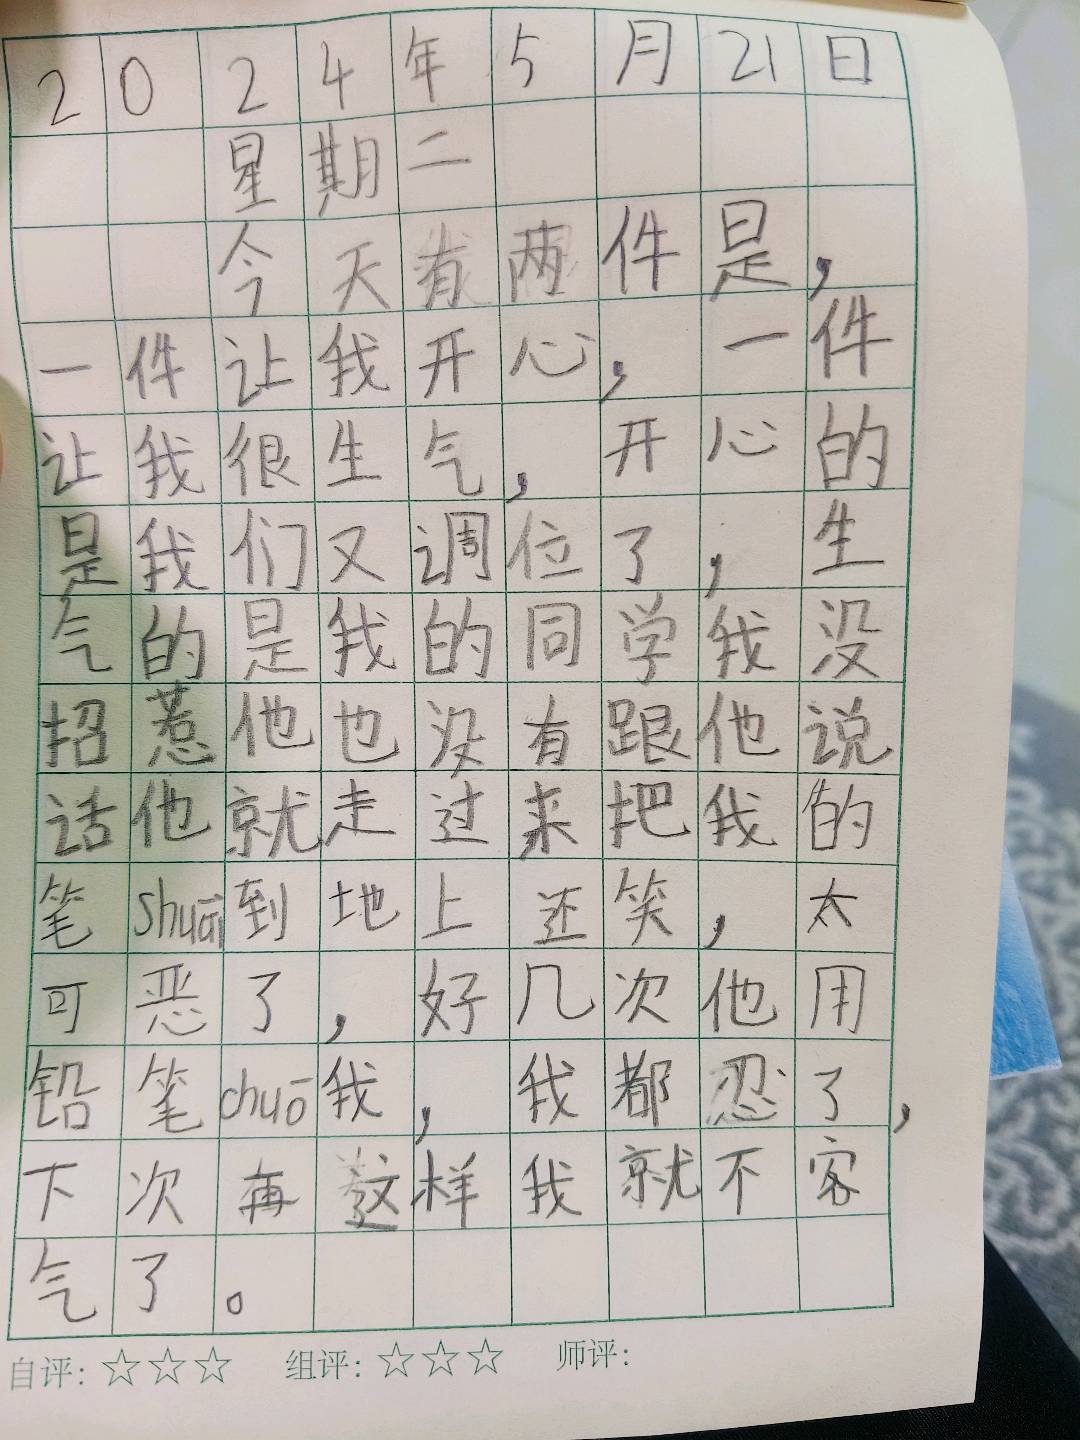 2024年5月21日
星期二
今天有两件是，
一件让我开心，一件
让我很生气，开心的
是我们又调位了，生
气的是我的同学我没
招惹他也没有跟他说
话他就走过来把我的
笔shuāi到地上还笑，太
可恶了，好几次他用
铅笔chuō我，我都忍了，
下次再这样我就不客
气了。
自评：☆☆☆ 组评：☆☆☆ 师评：